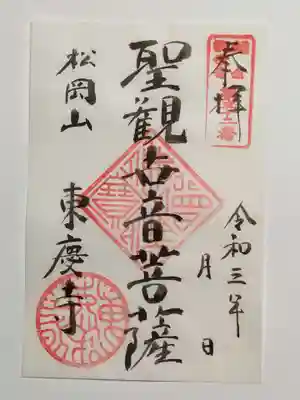 奉拝
令和三年 月 日
聖觀世音菩薩
松岡山
東慶寺